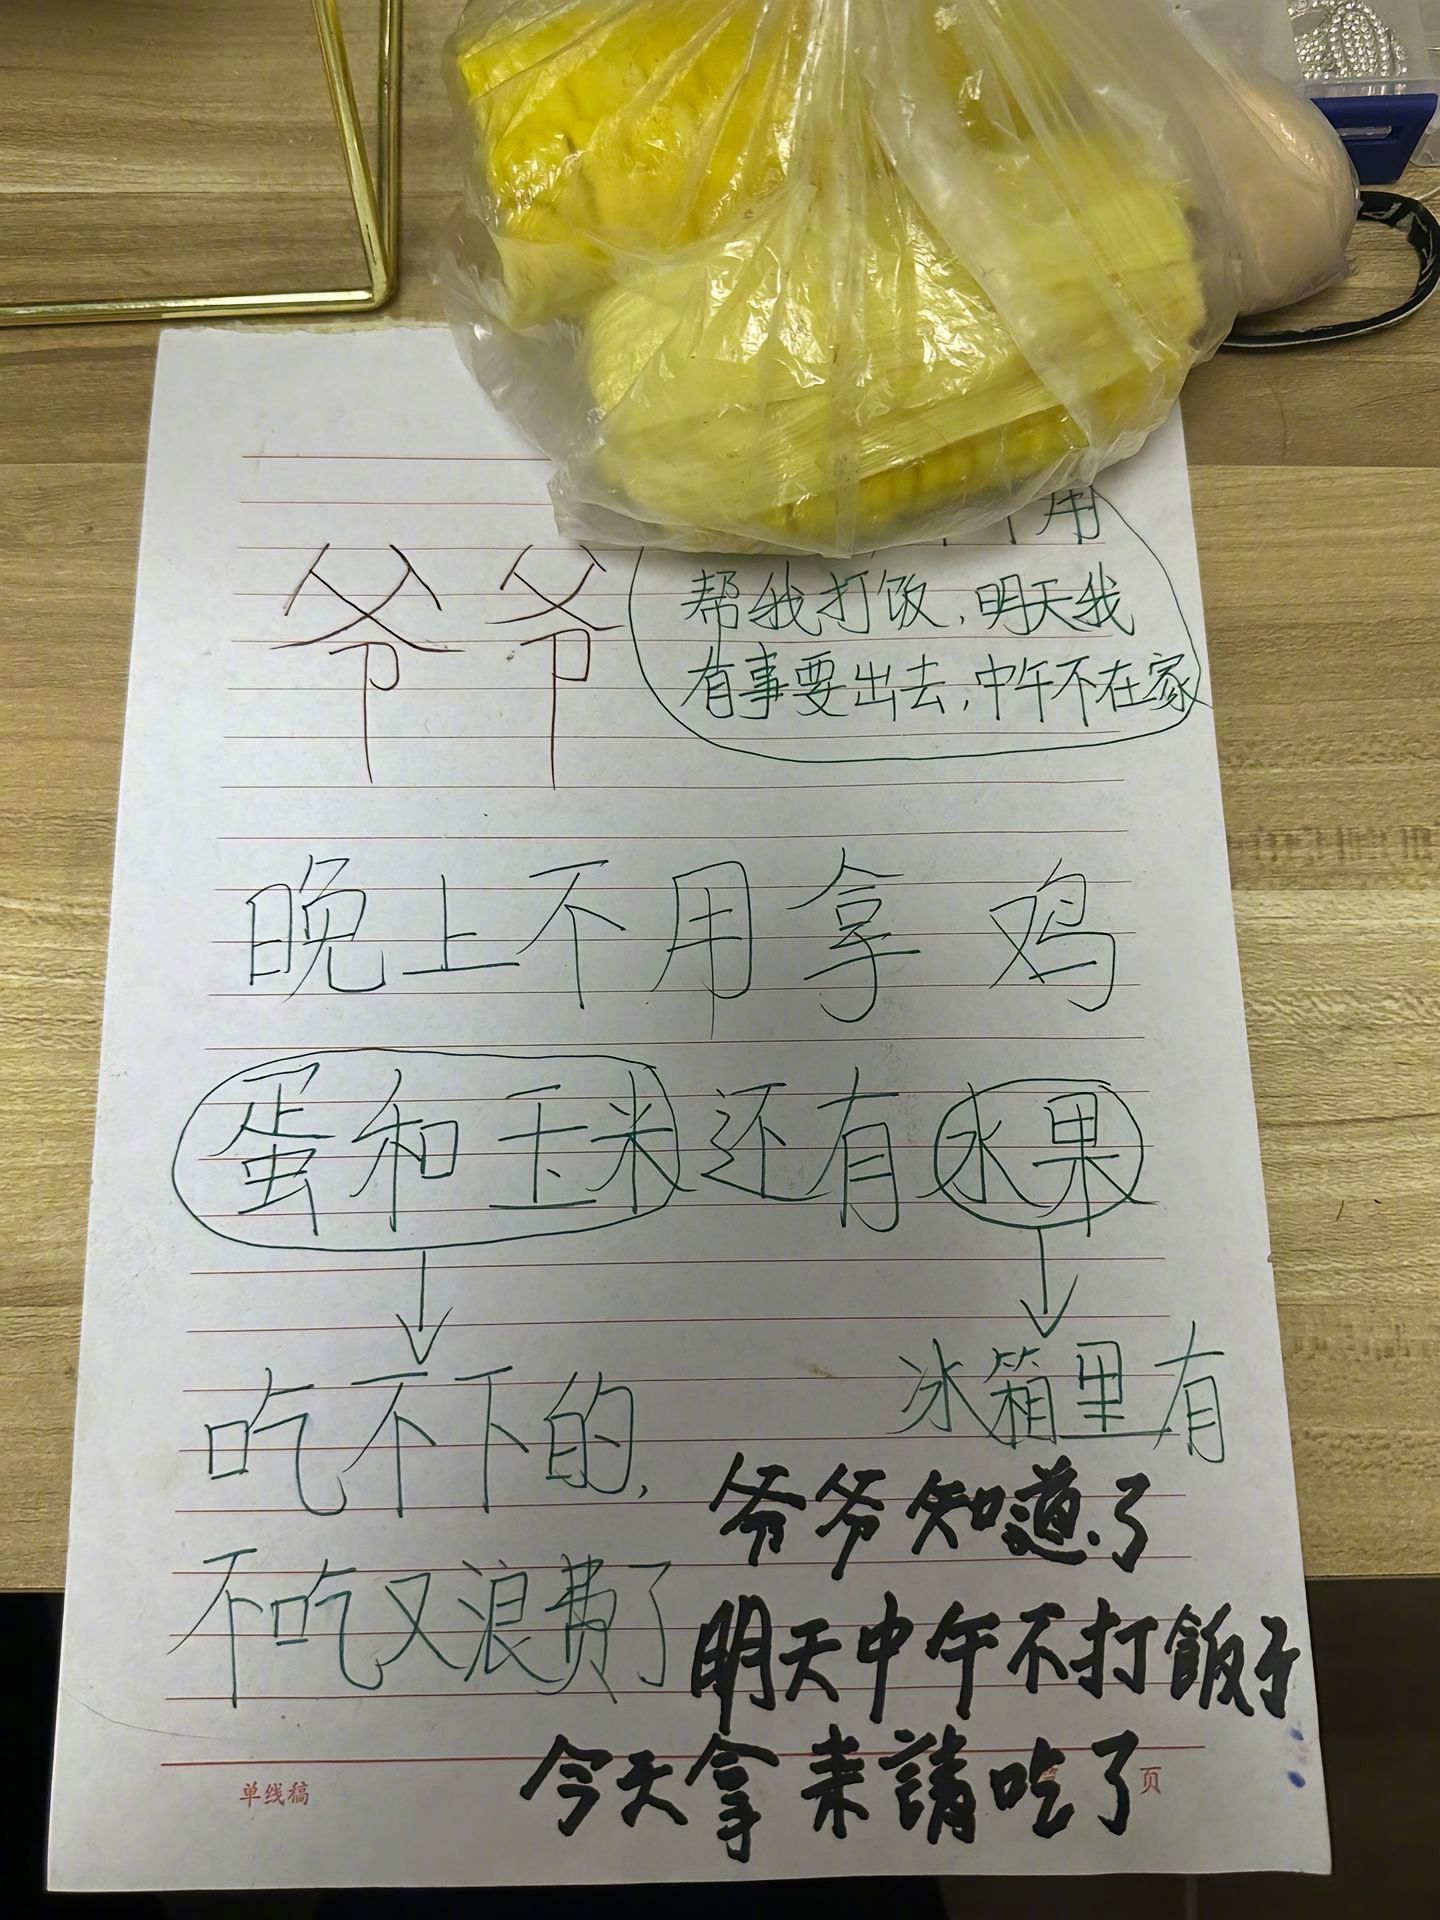 用
爷爷
帮我打饭,明天我
有事要出去,中午不在家
晚上不用拿鸡
蛋和玉米还有水果
吃不下的,
冰箱里有
不吃又浪费了
爷爷知道了
明天中午不打飯了
今天拿来請吃了
单线稿
页